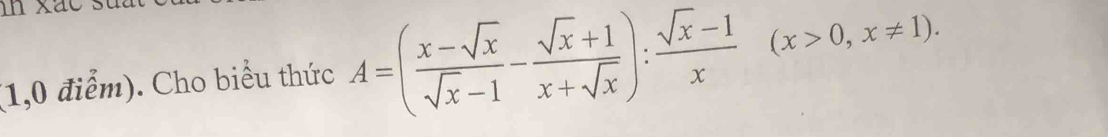 (1,0 điểm). Cho biểu thức $A = \left( \frac{x - \sqrt{x}}{\sqrt{x} - 1} - \frac{\sqrt{x} + 1}{x + \sqrt{x}} \right) : \frac{\sqrt{x} - 1}{x}$ $(x > 0, x \neq 1)$.